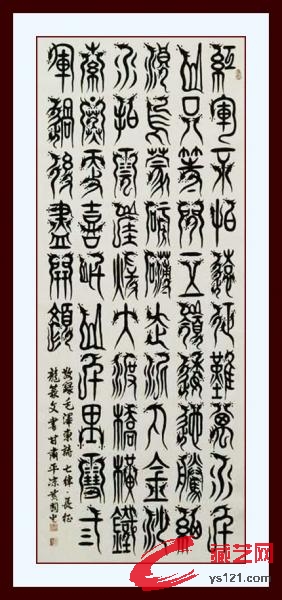 紅軍不怕遠征難萬水千
山只等閒五嶺逶迤騰細
浪烏蒙磅礴走泥丸金沙
水拍雲崖暖大渡橋橫鐵
索寒更喜岷山千里雪三
軍過後盡開顏
毛澤東詩七律·長征
龍篆文書甘肅平凉黄國
藏艺网
ys121.com